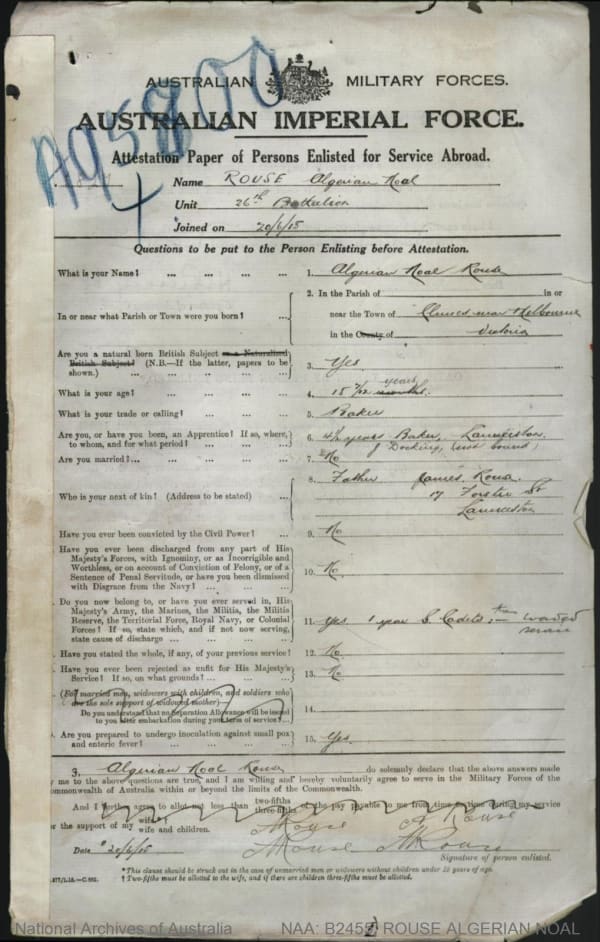 AUSTRALIAN MILITARY FORCES.
AUSTRALIAN IMPERIAL FORCE.
Attestation Paper of Persons Enlisted for Service Abroad.
Name ROUSE Algerian Noal
Unit 26th Battalion
Joined on 20/6/15
Questions to be put to the Person Enlisting before Attestation.
What is your Name? ... ... ... ... 1. Algerian Noal Rouse
In or near what Parish or Town were you born? ... 2. In the Parish of in or
near the Town of Clunes near Melbourne
in the County of Victoria
Are you a natural born British Subject or a Naturalized
British Subject? (N.B.—If the latter, papers to be
shown.) ... ... ... ... ... 3. Yes
What is your age? ... ... ... ... 4. 18 7/12 years months.
What is your trade or calling? ... ... ... 5. Baker
Are you, or have you been, an Apprentice? If so, where,
to whom, and for what period? ... ... ... 6. 4½ years Baker, Launceston
J Docking, (not bound)
Are you married?... ... ... ... ... 7. No
Who is your next of kin? (Address to be stated) ... 8. Father James Rouse
17 Forster St
Launceston
Have you ever been convicted by the Civil Power? ... 9. No
Have you ever been discharged from any part of His
Majesty's Forces, with Ignominy, or as Incorrigible and
Worthless, or on account of Conviction of Felony, or of a
Sentence of Penal Servitude, or have you been dismissed
with Disgrace from the Navy? ... ... ... 10. No
Do you now belong to, or have you ever served in, His
Majesty's Army, the Marines, the Militia, the Militia
Reserve, the Territorial Force, Royal Navy, or Colonial
Forces? If so, state which, and if not now serving,
state cause of discharge ... ... ... 11. Yes 1 year S. Cadets
Have you stated the whole, if any, of your previous service? 12. No
Have you ever been rejected as unfit for His Majesty's
Service? If so, on what grounds? ... ... ... 13. No
(For married men, widowers with children, and soldiers who
are the sole support of widowed mother)—
Do you understand that no Separation Allowance will be issued
to you after embarkation during your term of service?... 14.
Are you prepared to undergo inoculation against small pox
and enteric fever? ... ... ... ... 15. Yes.
3. Algerian Noal Rouse do solemnly declare that the above answers made
by me to the above questions are true, and I am willing and hereby voluntarily agree to serve in the Military Forces of the
Commonwealth of Australia within or beyond the limits of the Commonwealth.
And I further agree to allot not less than two-fifths three-fifths of the pay payable to me from time to time during my service
for the support of my wife wife and children.
A Rouse
Date 20/6/15 A Rouse
Signature of person enlisted.
* This clause should be struck out in the case of unmarried men or widowers without children under 18 years of age.
† Two-fifths must be allotted to the wife, and if there are children three-fifths must be allotted.
National Archives of Australia NAA: B2455, ROUSE ALGERIAN NOAL